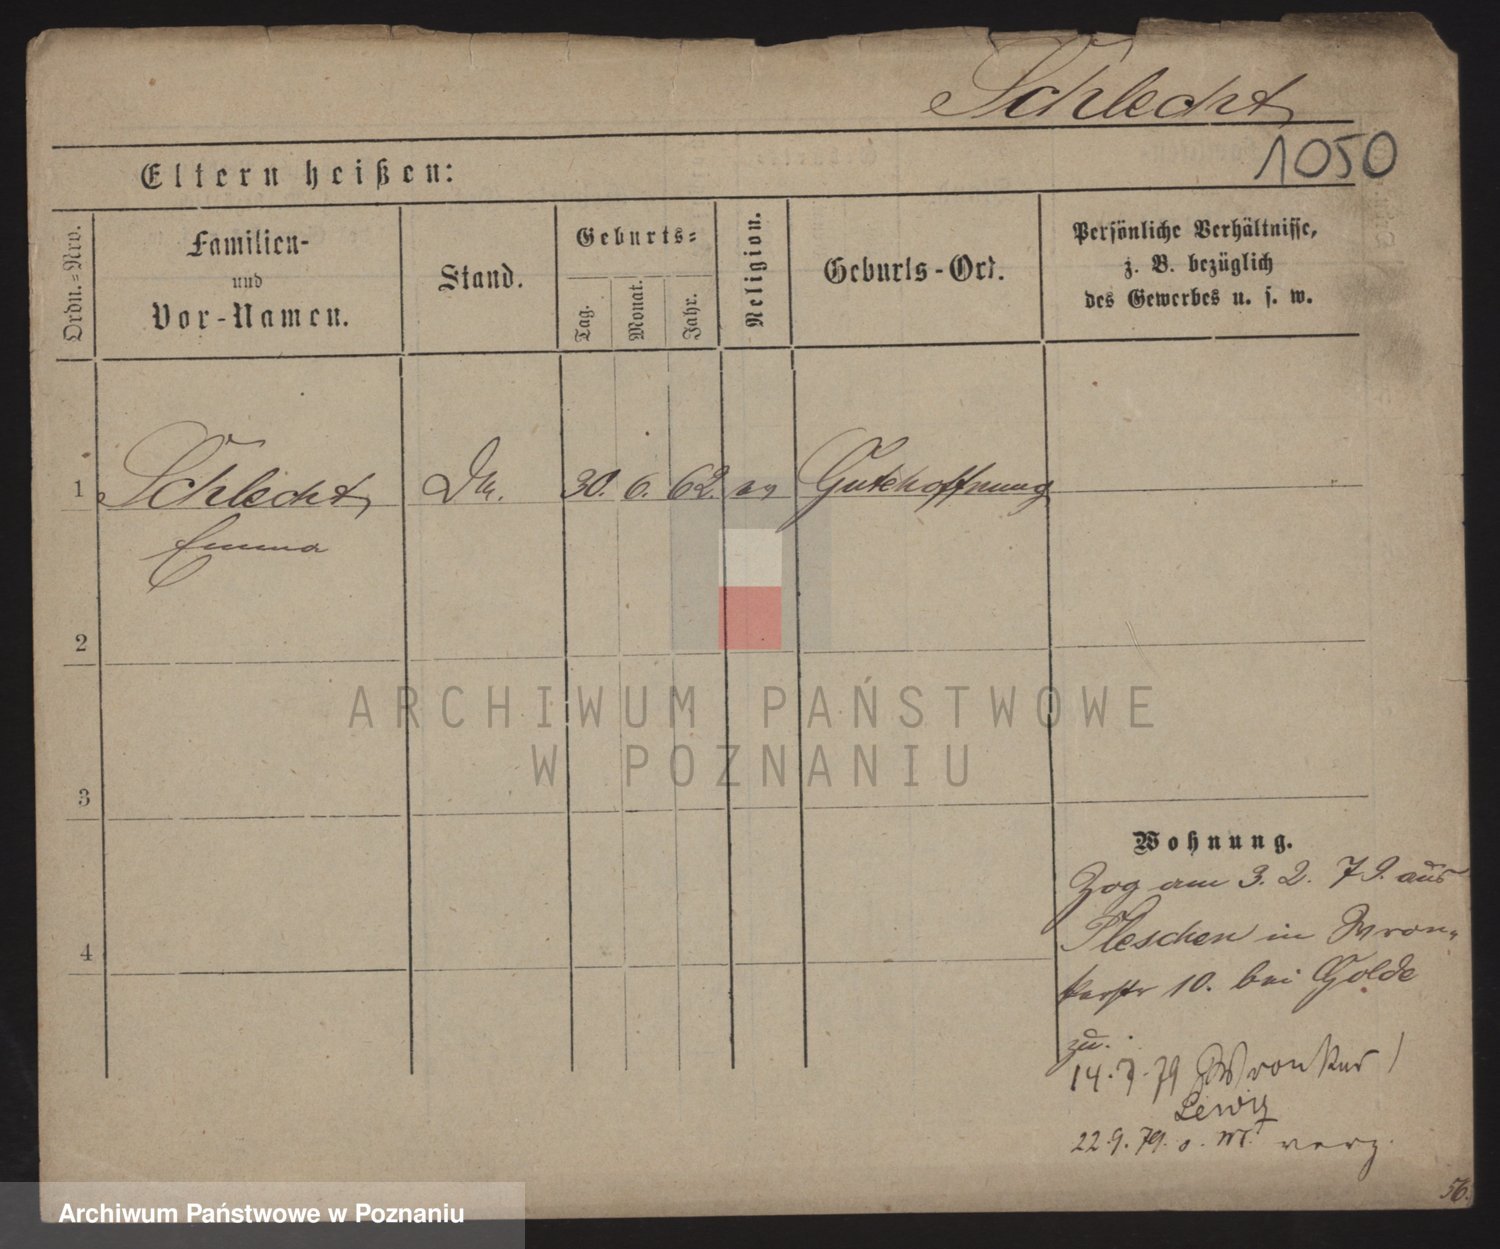 Schlecht
1050
Eltern heißen:
Ordn.=Nro.
Familien-
und
Vor-Namen.
Stand.
Geburts=
Tag.
Monat.
Jahr.
Religion.
Geburts-Ort.
Persönliche Verhältnisse,
z. B. bezüglich
des Gewerbes u. s. w.
1 Schlecht 30. 6. 62. ev Gutehoffnung
Emma
2
3
4
ARCHIWUM PAŃSTWOWE
W POZNANIU
Wohnung.
Zog am 3. 2. 79. aus
Pleschen in Wron„
kerstr 10. bei Golde
zu.
14. 7. 79 Wronker
Lewin
22.9.79. o. M. verz.
56.
Archiwum Państwowe w Poznaniu